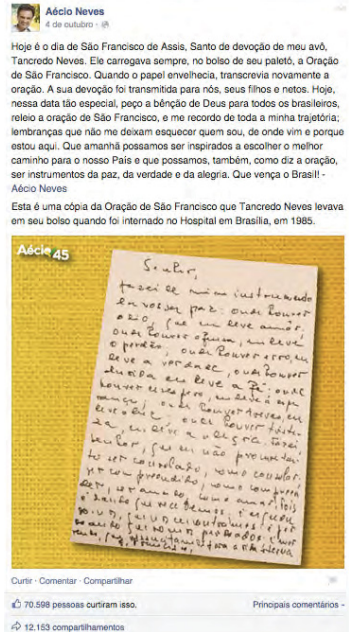 Aécio Neves
4 de outubro ·
Hoje é o dia de São Francisco de Assis, Santo de devoção de meu avô,
Tancredo Neves. Ele carregava sempre, no bolso de seu paletó, a Oração
de São Francisco. Quando o papel envelhecia, transcrevia novamente a
oração. A sua devoção foi transmitida para nós, seus filhos e netos. Hoje,
nessa data tão especial, peço a bênção de Deus para todos os brasileiros,
releio a oração de São Francisco, e me recordo de toda a minha trajetória;
lembranças que não me deixam esquecer quem sou, de onde vim e porque
estou aqui. Que amanhã possamos ser inspirados a escolher o melhor
caminho para o nosso País e que possamos, também, como diz a oração,
ser instrumentos da paz, da verdade e da alegria. Que vença o Brasil! -
Aécio Neves
Esta é uma cópia da Oração de São Francisco que Tancredo Neves levava
em seu bolso quando foi internado no Hospital em Brasília, em 1985.
Aécio 45
Senhor,
fazei de mim instrumento
de vossa paz: onde houver
ódio, que eu leve amor;
onde houver ofensa, eu leve
o perdão; onde houver erro, eu
leve a verdade; onde houver
Senhor, que eu não
to ser consolado, como consolar;
ser compreendido, como
Curtir · Comentar · Compartilhar
70.598 pessoas curtiram isso.
Principais comentários
12.153 compartilhamentos